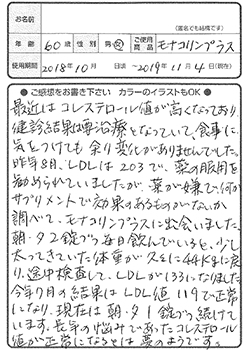 お名前
(匿名でも結構です)
年齢 60歳 性別 男・女 ご使用商品 モナコリンプラス
使用期間 2018年10月 日頃 ~2019年11月4日(現在)
● ご感想をお書き下さい カラーのイラストもOK ●
最近はコレステロール値が高くなっており
健診結果は要治療となっていて、食事に
気をつけても余り変化がありませんでした。
昨年8月、LDLは203で、薬の服用を
勧められていましたが、薬が嫌で、何か
サプリメントで効果のあるものがないか
調べて、モナコリンプラスに出会いました。
朝・夕2錠づつ毎日飲んでいると、少し
太ってきていた体重が久々に44Kgに戻
り、途中検査して、LDLが133になりました
今年9月の結果はLDL値119で正常
になり、現在は朝・夕1錠づつ続けて
います。長年の悩みであったコレステロール
値が正常になるとは夢のようです。